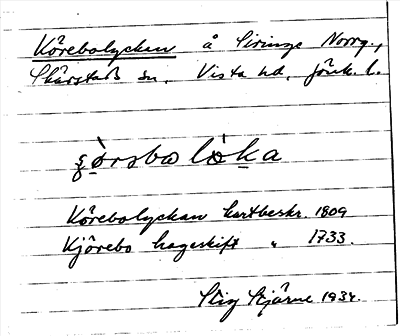 Körebolyckan å Siringe Norrg.,
Skärstads sn. Vista hd. Jönk. l.
Körebolyckan kartbeskr. 1809
Kjörebo hageskift " 1733.
Stig Stjärne 1934.